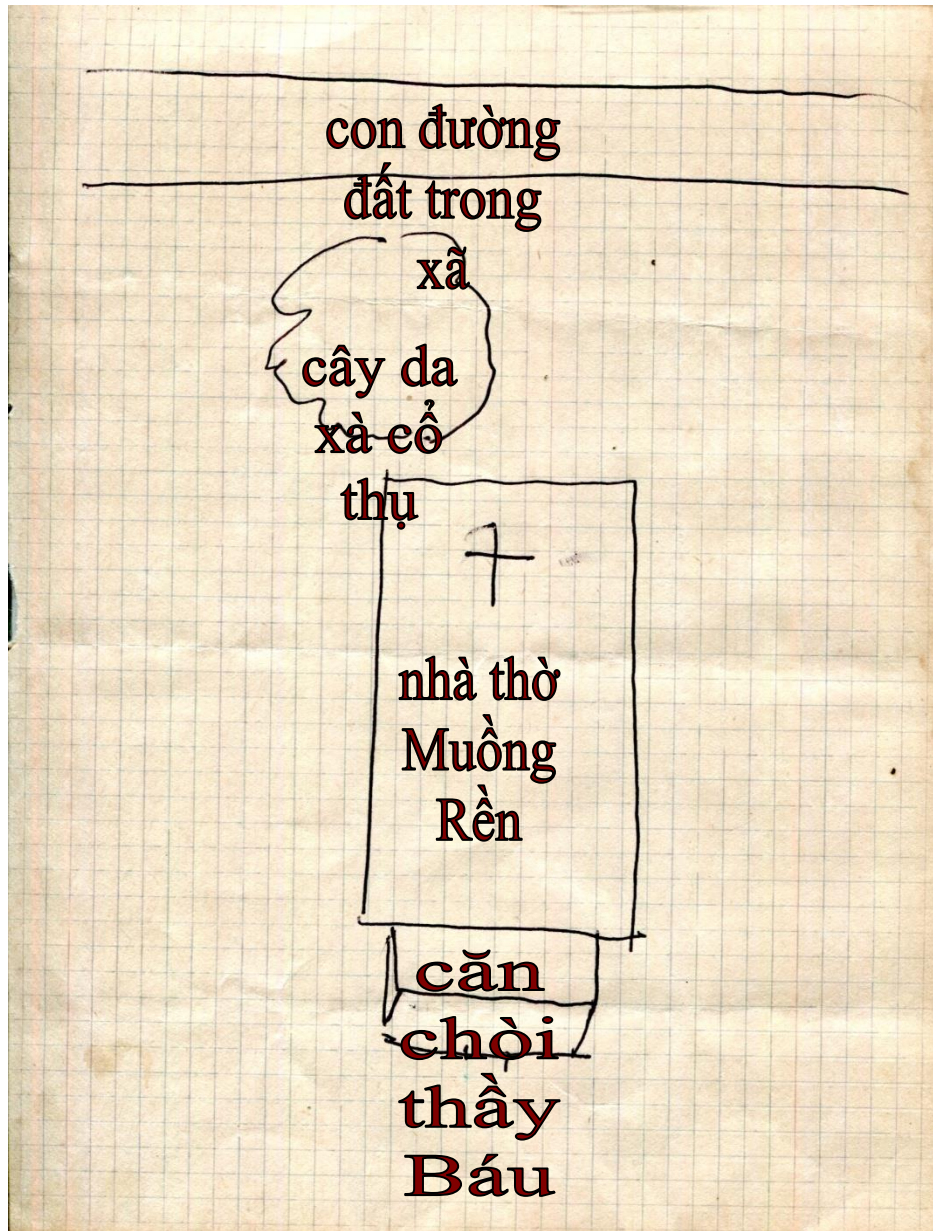 con đường
đất trong
xã
cây da
xà cổ
thụ
nhà thờ
Muồng
Rền
căn
chòi
thầy
Báu